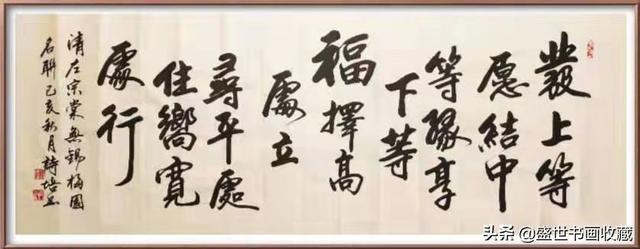 發上等
愿結中
等緣享
下等
福擇高
處立
尋平處
住嚮寬
處行
清左宗棠無錫梅園
名聯己亥秋月詩培书
头条 @盛世书画收藏